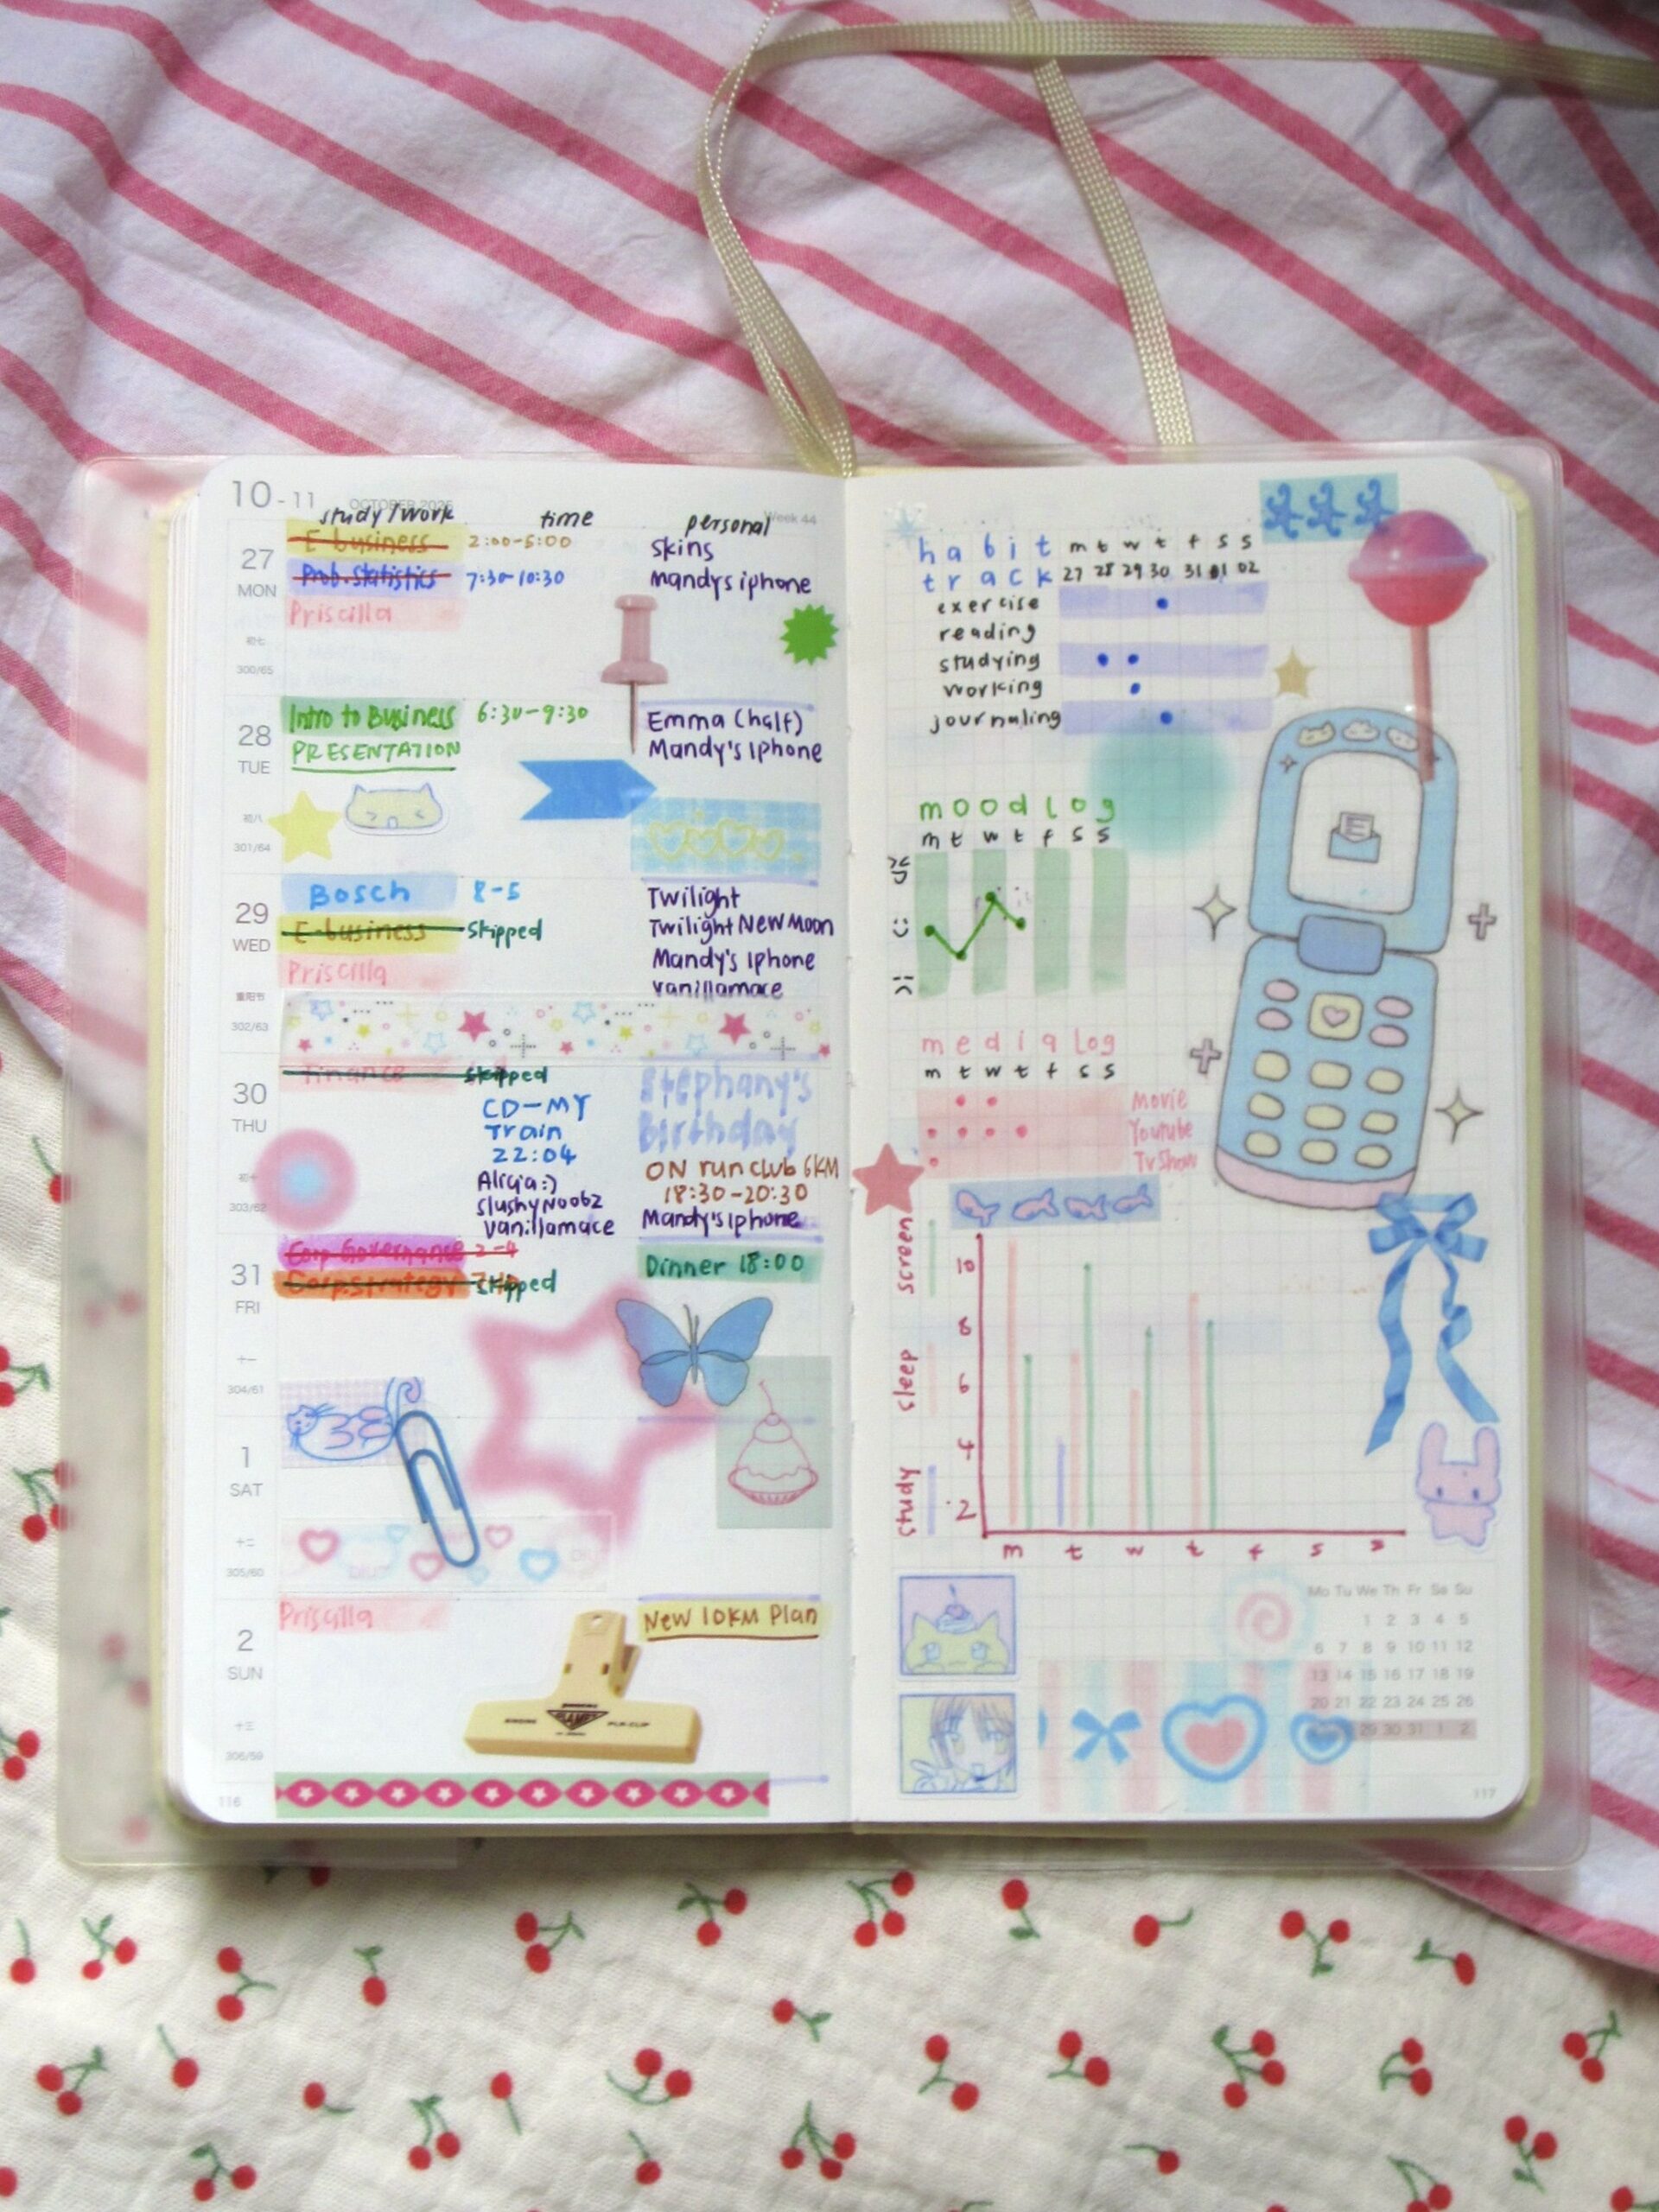 10-11 OCTOBER 2025
Week 44
study/work time personal
27
MON
E-business 2:00-5:00
Prob. Statistics 7:30-10:30
Priscilla
skins
mandys iphone
初七
300/65
28
TUE
Intro to Business 6:30-9:30
PRESENTATION
Emma (half)
Mandy's Iphone
初八
301/64
29
WED
Bosch 8-5
E-business Skipped
Priscilla
Twilight
Twilight New Moon
Mandy's Iphone
vanillamace
重阳节
302/63
30
THU
Finance skipped
CD-MY
Train
22:04
Alicia :)
slushyNoobz
vanillamace
Stephany's
Birthday
ON run club 6KM
18:30-20:30
Mandy's Iphone
初十
303/62
31
FRI
Corp Governance
Corp.strategy skipped
Dinner 18:00
十一
304/61
1
SAT
十二
305/60
2
SUN
Priscilla
New 10KM Plan
十三
306/59
116
habit m t w t f s s
track 27 28 29 30 31 01 02
exercise
reading
studying
working
journaling
mood log
m t w t f s s
media log
m t w t f s s
Movie
Youtube
Tv Show
screen
sleep
study
10
8
6
4
2
m t w t f s s
Mo Tu We Th Fr Sa Su
1 2 3 4 5
6 7 8 9 10 11 12
13 14 15 16 17 18 19
20 21 22 23 24 25 26
29 30 31 1 2
117